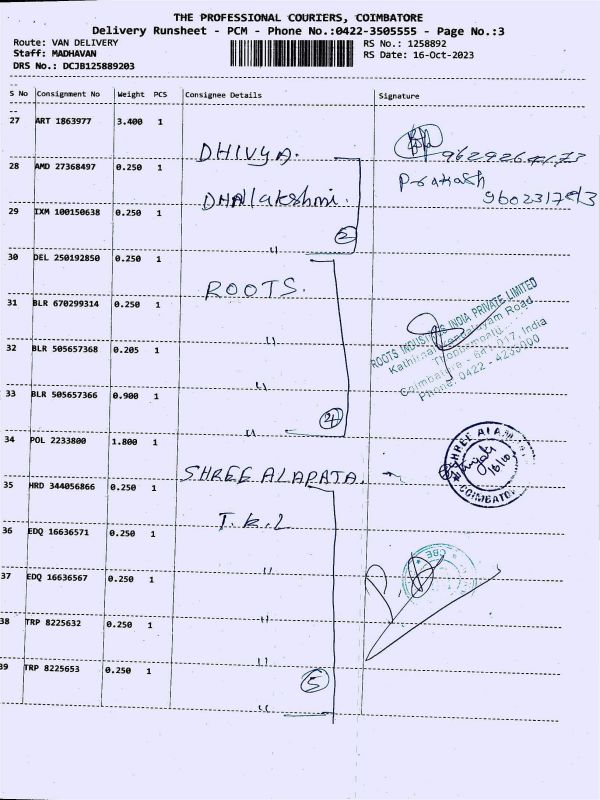 THE PROFESSIONAL COURIERS, COIMBATORE
Delivery Runsheet - PCM - Phone No.:0422-3505555 - Page No.:3
Route: VAN DELIVERY RS No.: 1258892
Staff: MADHAVAN RS Date: 16-Oct-2023
DRS No.: DCJB125889203
S No Consignment No Weight PCS Consignee Details Signature
27 ART 1863977 3.400 1 DHIVYA.
28 AMD 27368497 0.250 1 DHANlakshmi. Prakash
29 IXM 100150638 0.250 1 " 2
30 DEL 250192850 0.250 1 ROOTS.
31 BLR 670299314 0.250 1 " ROOTS INDUSTRIES INDIA PRIVATE LIMITED
32 BLR 505657368 0.205 1 " Road
33 BLR 505657366 0.900 1 " 4 Coimbatore - 641 017, India
Phone: 0422 - 4233000
34 POL 2233800 1.800 1 SHREE ALAPATA. SHREE ALA
COIMBATO
35 HRD 344056866 0.250 1 T.K.L
36 EDQ 16636571 0.250 1 " CBE
37 EDQ 16636567 0.250 1 "
38 TRP 8225632 0.250 1 "
39 TRP 8225653 0.250 1 " 5